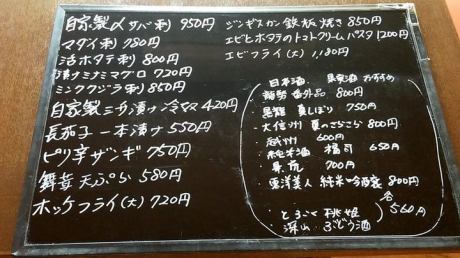 自家製〆サバ刺 950円
マダイ刺 780円
活ホタテ刺 800円
漬けミナミマグロ 720円
ミンククジラ刺 850円
自家製三升漬け冷奴 420円
長茄子一本漬け 550円
ピリ辛ザンギ 750円
舞茸天ぷら 580円
ホッケフライ(大) 720円
ジンギスカン鉄板焼き 850円
エビとホタテのトマトクリームパスタ 1200円
エビフライ(大) 1,180円
日本酒 果実酒 おすすめ
番外品 800円
黒龍 夏しぼり 750円
大信州 夏のさらさら 800円
600円
・純米酒 福司 650円
700円
・東洋美人 純米吟醸 800円
・とろこく 桃姫
深山 ぶどう酒
各560円